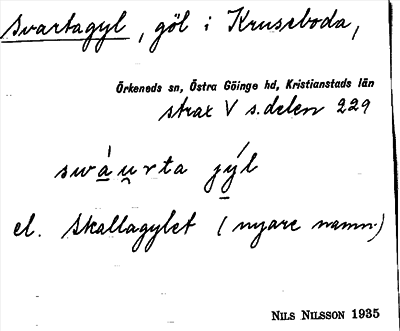 Svartagyl, göl i Kruseboda,
Örkeneds sn, Östra Göinge hd, Kristianstads län
strax V s.delen 229
swáu̯rta jýl
el. Skallagylet (nyare namn.)
NILS NILSSON 1935